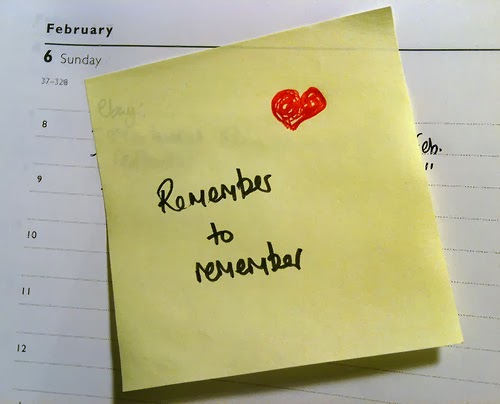 February
6 Sunday
37-328
8
9
10
11
12
ebay:
Remember
to
remember